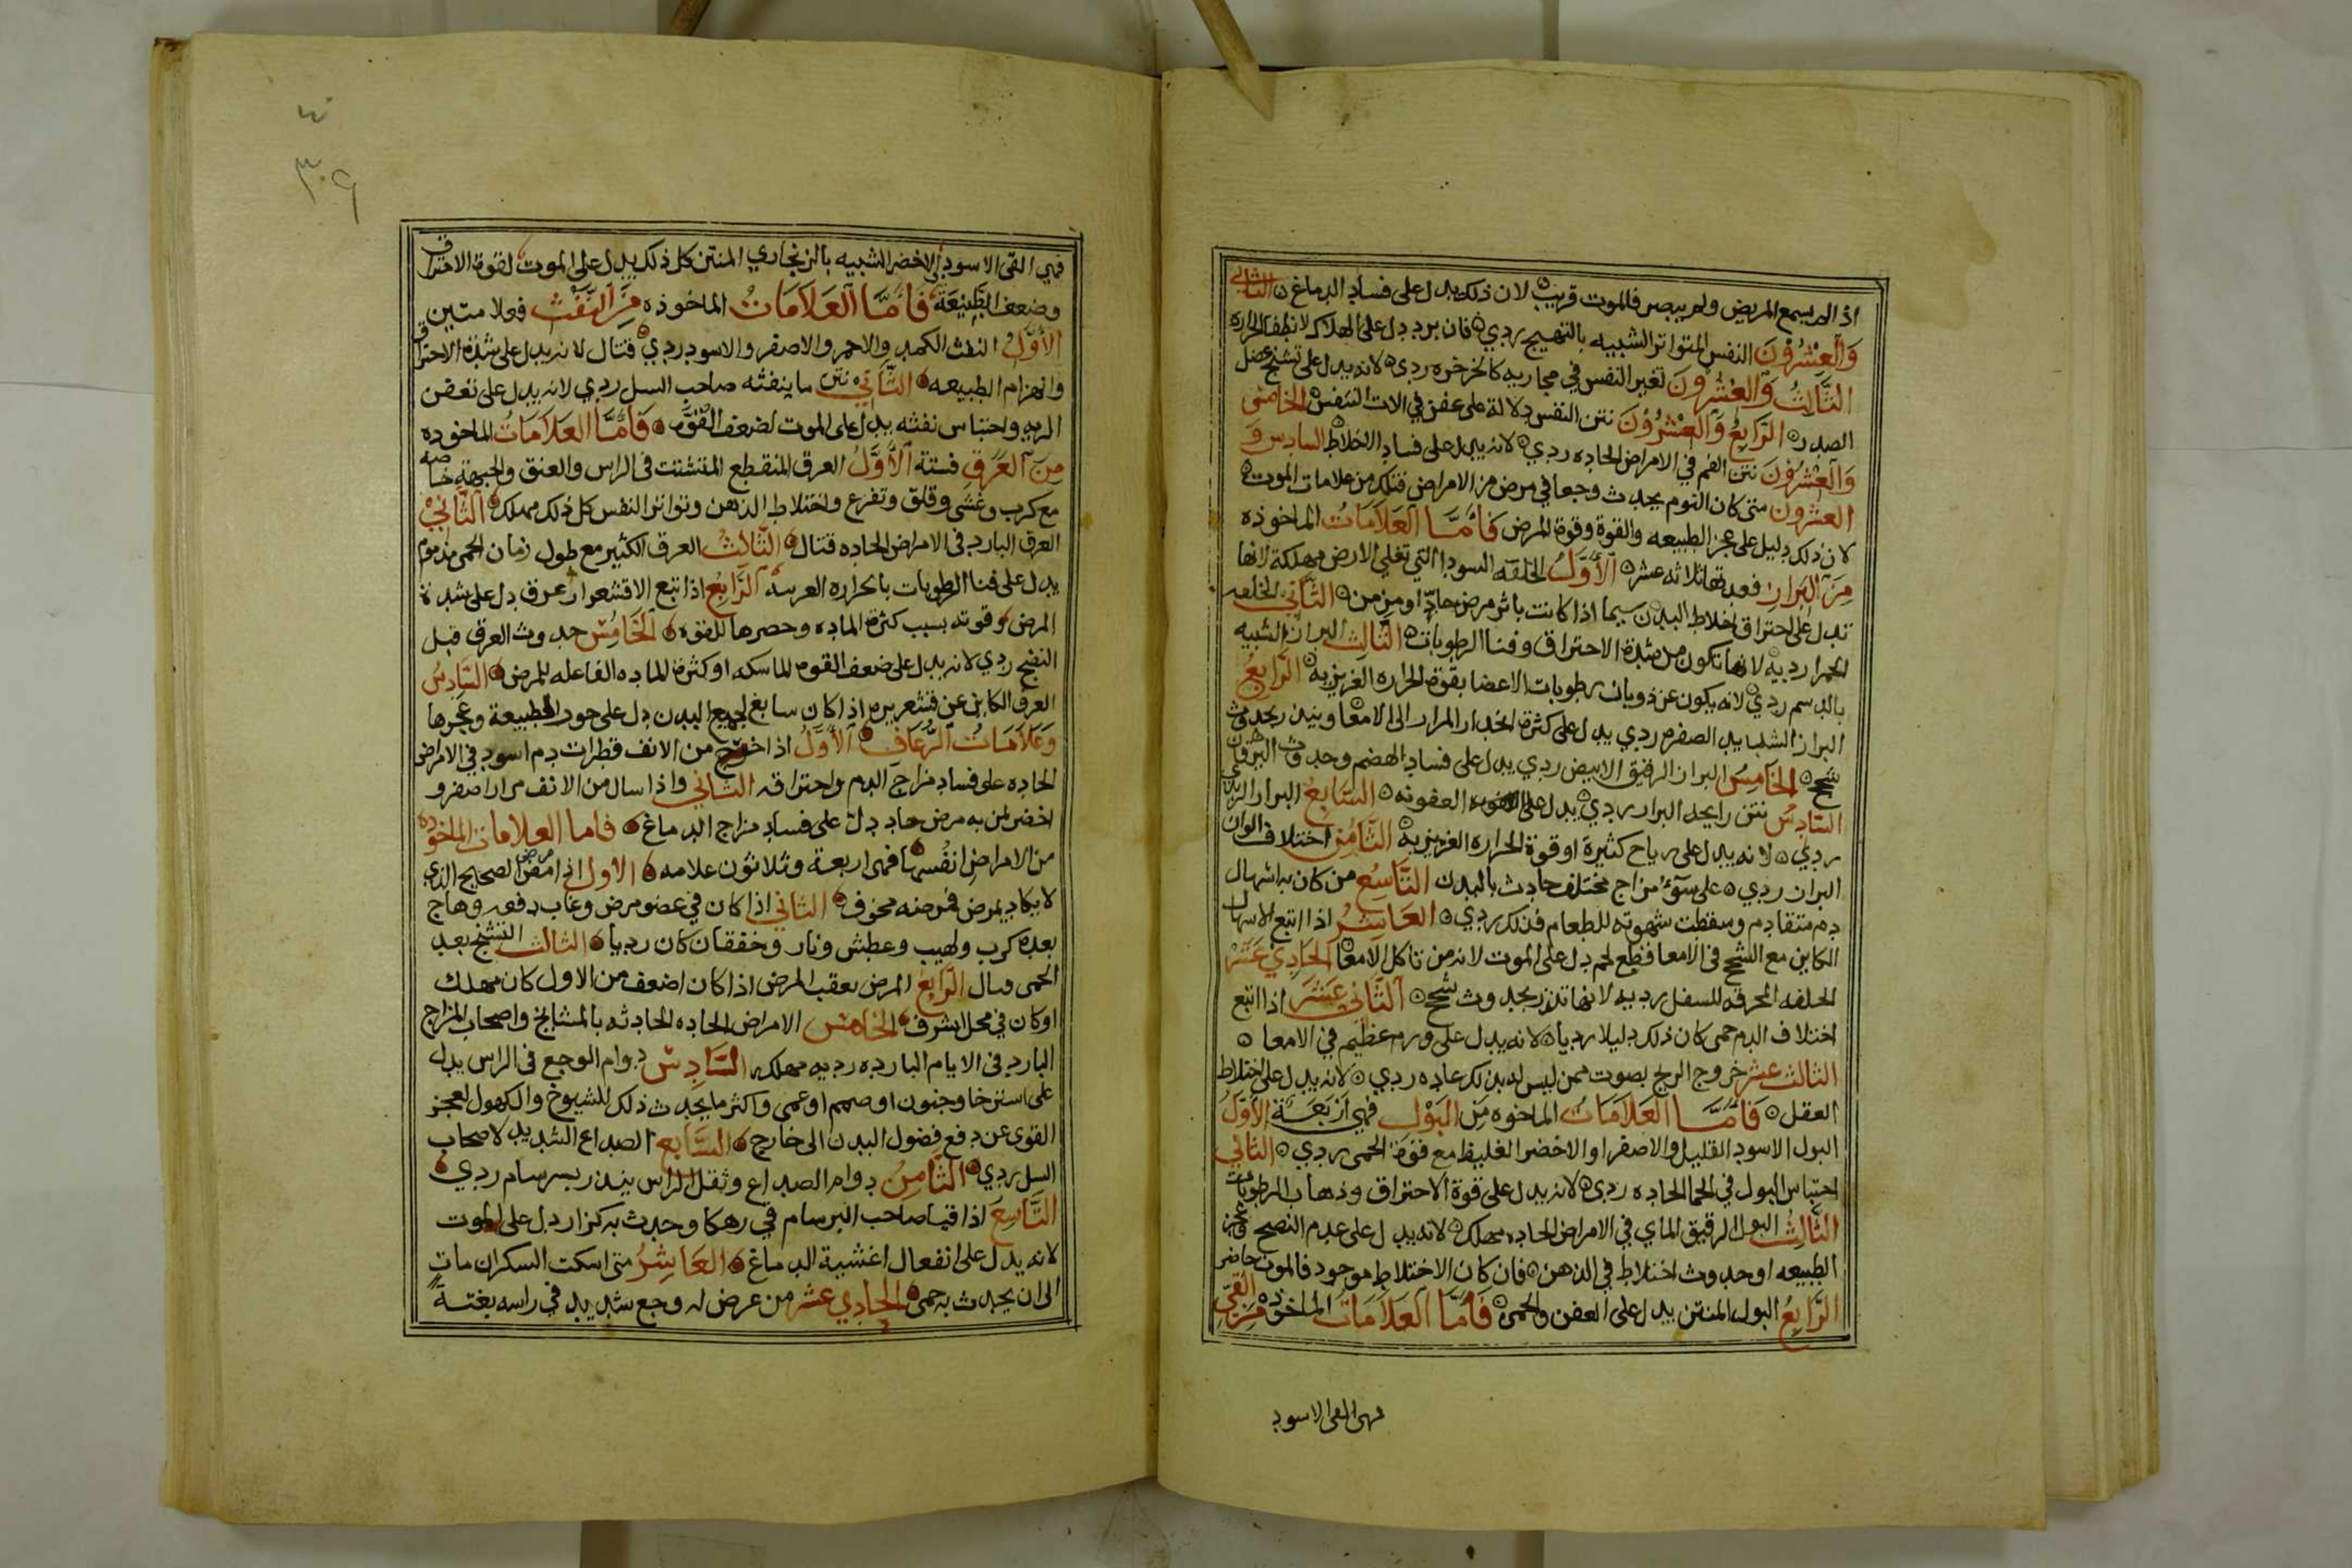 اذا لم يسمع المريض ولم يبصر فالموت قريب لان ذلك يدل على فساد الدماغ الثاني
وَالعِشْرُونَ النفس المتواتر الشبيه بالتهيج ردي فان برد دل على الهلاك لانطفا الحراره
الثَّالِثُ وَالعِشْرُونَ تغير النفس في مجاريه كالخرخره ردي لانه يدل على تشنج عضل
الصدر الرَّابِعُ وَالعِشْرُونَ نتن النفس دلالة على عفن في الات التنفس الخامس
وَالعِشْرُونَ نتن الفم في الامراض الحاده ردي لانه يدل على فساد الاخلاط السادس وَ
العشرون متى كان النوم يحدث وجعا في مرض من الامراض فتلك من علامات الموت
لان ذلك دليل على عجز الطبيعه والقوة وقوة المرض فَأمَّا العَلاَمَاتُ الماخوذه
مِنَ البَرَازِ فعدتها ثلاثه عشر الأَوَّلُ الخلفه السودا التي تغلي الارض مهلكة لانها
تدل على احتراق اخلاط البدن سيما اذا كانت باثر مرض حادّ او مزمن الثَّاني الخلفه
الحمرا رديه لانها تكون من شدة الاحتراق وفنا الرطوبات الثَّالِث البراز الشبيه
بالدسم ردي لانه يكون عن ذوبان رطوبات الاعضا بقوة الحراره الغريزيه الرَّابِعُ
البراز الشديد الصفره ردي يدل على كثرة انحدار المرار الى الامعا وينذر بحدوث
سحج الخَامِسُ البراز الرقيق الابيض ردي يدل على فساد الهضم وحدوث اليرقان
السَّادِسُ نتن رايحة البراز ردي يدل على العفونه السَّابِعُ البراز الزبدي
ردي لانه يدل على رياح كثيرة او قوة الحراره الغريزيه الثَّامُن اختلاف الوان
البراز ردي على سوء مزاج مختلف حادث بالبدن التَّاسِعُ من كان به اسهال
دم متقادم وسقطت شهوته للطعام فذلك ردي العَاشِرُ اذا اتبع الاسهال
الكاين مع السحج في الامعا قطع لحم دل على الموت لانه من تاكل الامعا الحَادِي عَشَرْ
الخلفه المحرقه للسفل رديه لانها تنذر بحدوث سحج الثَّاني عَشَرَ اذا اتبع
اختلاف الدم حمى كان ذلك دليلا رديا لانه يدل على ورم عظيم في الامعا
الثالث عشر خروج الريح بصوت ممن ليس له بذلك عاده ردي لانه يدل على اختلاط
العقل فَأَمَّا العَلاَمَاتُ الماخوه مِن البَوْل فهي اَرْبَعَة الأَوَّلُ
البول الاسود القليل والاصفر او الاخضر الغليظ مع قوة الحمى ردي الثاني
احتباس البول في الحما الحاده ردي لانه يدل على قوة الاحتراق وذهاب الرطوبات
الثَّالِثُ البول الرقيق الماي في الامراض الحاده مهلك لانه يدل على عدم النضج وعجز
الطبيعه او حدوث اختلاط في الذهن فان كان الاختلاط موجود فالموت حاضر
الرَّابِعُ البول المنتن يدل على العفن والحمى فَأَمَّا العَلاَمَاتُ الماخوذة مِنَ القي
فهي القي الاسود
٣٠٩
فهي القي الاسود او الاخضر الشبيه بالزنجاري المنتن كل ذلك يدل على الموت لقوة الاحتراق
وضعف الطَّبِيعَة فَامَّا العَلاَمَاتُ الماخوذه مِنَ النَّفْث فعلامتين
الأَوَّلُ النفث الكمد والاحمر والاصفر والاسود ردي قتال لانه يدل على شدة الاحتراق
وانهزام الطبيعه الثَّاني نتن ما ينفثه صاحب السل ردي لانه يدل على تعفن
الريه واحتباس نفثه يدل على الموت لضعف القوَّه فَامَّا العَلاَمَاتُ الماخوده
مِنَ العَرَقِ فستة الأَوَّلُ العرق المنقطع المتشتت في الراس والعنق والجبهة خاصه
مع كرب وغشى وقلق وتفزع واختلاط الذهن وتواتر النفس كل ذلك مهلك الثَّانيْ
العرق البارد في الامراض الحاده قتال الثَّالِثُ العرق الكثير مع طول زمان الحمى مذموم
يدل على فنا الرطوبات بالحراره الغريبه الرَّابِعُ اذا تبع الاقشعرار عرق دل على شدة
المرض وقوته بسبب كثرة الماده وحصرها للقوه الخَامُِسْ حدوث العرق قبل
النضج ردي لانه يدل على ضعف القوه الماسكه او كثرة الماده الفاعله للمرض السَّادِسُ
العرق الكاين عن قشعريره اذا كان سابغ لجميع البدن دل على خور الطبيعة وعجزها
وَعَلاَمَاتُ الرُّعَافِ الأَوَّلُ اذا خرج من الانف قطرات دم اسود في الامراض
الحاده على فساد مزاج الدم واحتراقه الثاني واذا سال من الانف مرارا صفر و
اخضر لمن به مرض حاد دل على فساد مزاج الدماغ فاما العلامات الماخوذه
من الامراض انفُسها فهي اربعة وثلاثون علامه الاول اذا مرض الصحيح الذي
لا يكاد يمرض فمرضه مخوف الثاني اذا كان في عضو مرض وغاب دفعه وهاج
بعده كرب ولهيب وعطش ونار وخفقان كان رديا الثالث التشنج بعد
الحمى قتال الرَّابِعُ المرض يعقب المرض اذا كان اضعف من الاول كان مهلك
او كان في محل اشرف الخامس الامراض الحاده الحادثه بالمشايخ واصحاب المزاج
البارد في الايام البارده رديه مهلكه السَّادِسُ دوام الوجع في الراس يدل
على استرخا وجنون او صمم او عمى واكثر ما يحدث ذلك للشيوخ والكهول لعجز
القوى عن دفع فضول البدن الى خارج السَّابِع الصداع الشديد لاصحاب
السل ردي الثَّامِنُ دوام الصداع وثقل الراس ينذر بسرسام ردي
التَّاسِعَ اذا قيا صاحب البرسام في رهكا وحدث به كزاز دل على الموت
لانه يدل على انفعال اغشية الدماغ العَاشِرُ متى اسكت السكران مات
الى ان يحدث به حمى الحَادِي عشر من عرض له وجع شديد في راسه بغتة